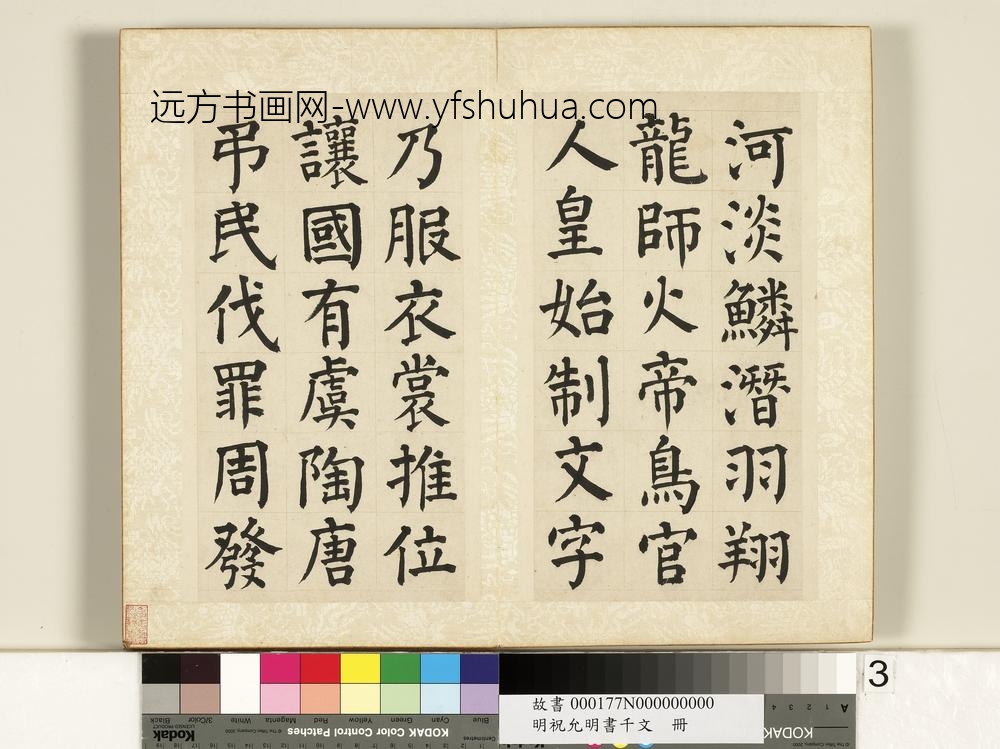 远方书画网-www.yfshuhua.com
河淡鱗潛羽翔
龍師火帝鳥官
人皇始制文字
乃服衣裳推位
讓國有虞陶唐
弔民伐罪周發
3
故書 000177N000000000
明祝允明書千文 冊
Blue Cyan Green Yellow Red Magenta White 3/Color Black
KODAK Color Control Patches
Kodak
LICENSED PRODUCT
Centimetres
A 1 2 3 4
KODAK